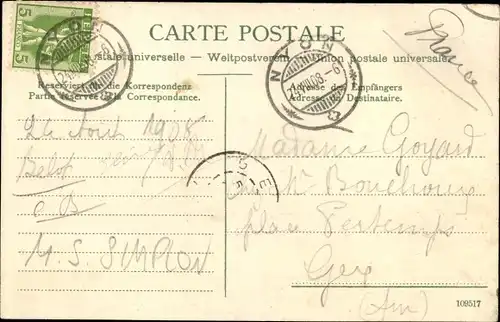 CARTE POSTALE
Union postale universelle – Weltpostverein – Union postale universale
Reserviert für die Korrespondenz
Partie réservée à la Correspondance.
Adresse des Empfängers
Adresse du Destinataire.
5 5
NYON
NYON
VIII.08.-6
France
24 Août 1908
M. S. SIMPLON
Madame Goyard
Bouchoux
place Pertemps
Gex
(Ain)
109517